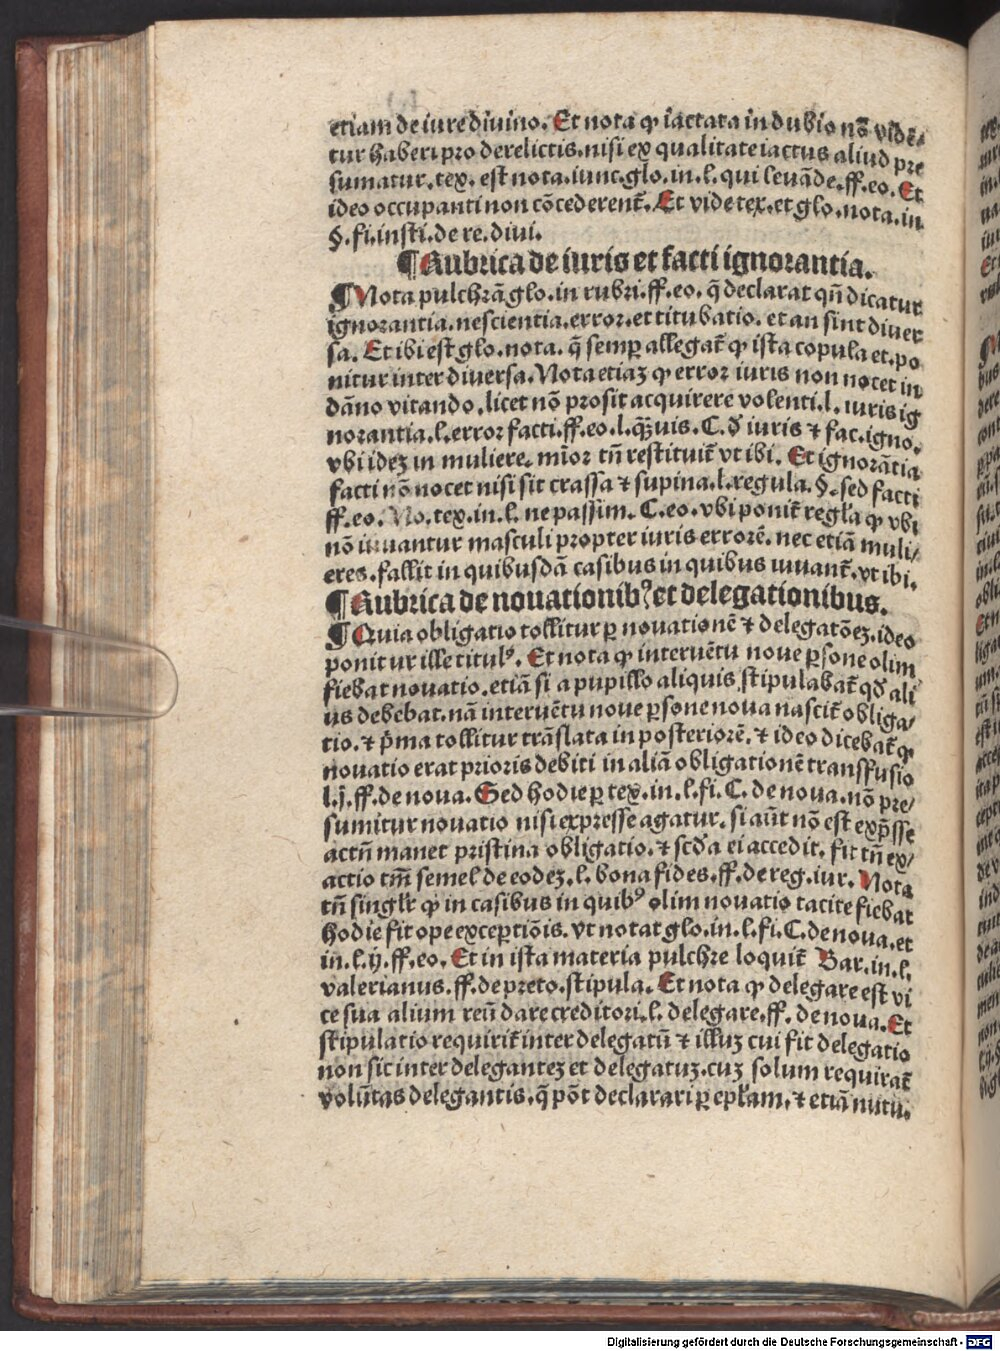 etiam de iure diuino. Et nota ꝙ iactata in dubio nō vidē⸗
tur haberi pro derelictis. nisi ex qualitate iactus aliud pre
sumatur. tex. est nota. iunc. glo. in. l. qui leuāde. ff. eo. Et
ideo occupanti non cōcederent̄. Et vide tex. et glo. nota. in.
§. fi. insti. de re. diui.
¶Rubrica de iuris et facti ignorantia.
¶Nota pulchrā glo. in rubri. ff. eo. q̄ declarat qn̄ dicatur
ignorantia. nescientia. error. et titubatio. et an sint diuer
sa. Et ibi est glo. nota. q̄ semꝑ allegat̄ ꝙ ista copula et. po
nitur inter diuersa. Nota etiaꝫ ꝙ error iuris non nocet in
dāno vitando. licet nō prosit acquirere volenti. l. iuris ig
norantia. l. error facti. ff. eo. l. q̄ꝫuis. C. ð iuris ⁊ fac. igno.
vbi ideꝫ in muliere. mīor tn̄ restituit̄ vt ibi. Et ignorātia
facti nō nocet nisi sit crassa ⁊ supina. l. regula. §. sed facti
ff. eo. No. tex. in. l. ne passim. C. eo. vbi ponit̄ regl̄a ꝙ vbi
nō iuuantur masculi propter iuris errorē. nec etiā muli⸗
eres. fallit in quibusdā casibus in quibus iuuant̄. vt ibi.
¶Rubrica de nouationibꝰ et delegationibus.
¶Quia obligatio tollitur ꝑ nouationē ⁊ delegatōeꝫ. ideo
ponitur ille titulꝰ. Et nota ꝙ interuētu noue ꝑsone olim
fiebat nouatio. etiā si a pupillo aliquis stipulabat̄ qð ali
us debebat. nā interuētu noue ꝑsone noua nascit̄ obliga⸗
tio. ⁊ p̄ma tollitur trāslata in posteriorē. ⁊ ideo dicebat̄ ꝙ
nouatio erat prioris debiti in aliā obligationē transfusio
l. j. ff. de noua. Sed hodie ꝑ tex. in. l. fi. C. de noua. nō pre⸗
sumitur nouatio nisi expresse agatur. si aūt nō est exp̄sse
actū manet pristina obligatio. ⁊ scd̄a ei accedit. fit tn̄ ex⸗
actio tm̄ semel de eodeꝫ. l. bona fides. ff. de reg. iur. Nota
tn̄ singl̄r ꝙ in casibus in quibꝰ olim nouatio tacite fiebat
hodie fit ope exceptiōis. vt notat glo. in. l. fi. C. de noua. et
in. l. ij. ff. eo. Et in ista materia pulchre loquit̄ Bar. in. l.
valerianus. ff. de preto. stipula. Et nota ꝙ delegare est vi
ce sua alium reū dare creditori. l. delegare. ff. de noua. Et
stipulatio requirit̄ inter delegatū ⁊ illuꝫ cui fit delegatio
non sic inter deleganteꝫ et delegatuꝫ. cuꝫ solum requirat̄
volūtas delegantis. q̄ pōt declarari ꝑ epl̄am. ⁊ etiā nutu.
Digitalisierung gefördert durch die Deutsche Forschungsgemeinschaft - DFG